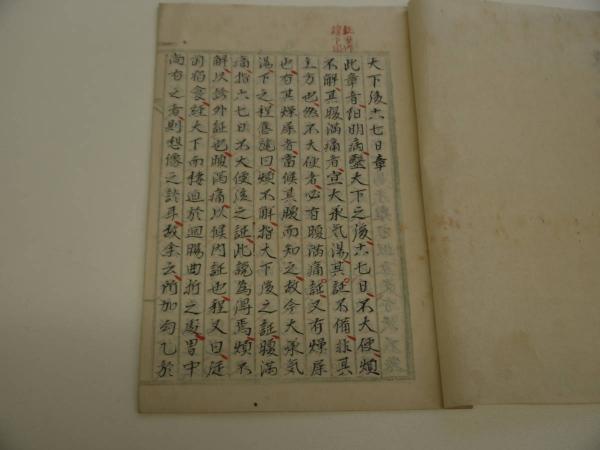 大下後六七日章
此章者陽明病經大下之後六七日不大便煩
不解其腹滿痛者宜大承氣湯其証不備非其
主方也然不大便者必有腹滿痛証又有燥屎
也有其燥屎者當候其腹而知之故令大承氣
湯下之程舊說曰煩不解指大下後之証腹滿
痛指六七日不大便後之証此說為得焉煩不
解以診外証也腹滿痛以候内証也程又曰逆
因宿食經大下而棲迫於迴腸曲折之處胃中
尚有之者則想像之於耳故余云所加勾乙於